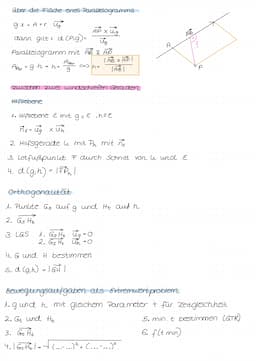 über die Fläche eines Parallelogramms
g x = A + r · u⃗g
dann gilt: d(P;g) = |AP⃗ × u⃗g| / |u⃗g|
Parallelogramm mit AP⃗ × AB⃗
A = g · h → h = A / g ⇔ h = |AB⃗ × AP⃗| / |AB⃗|
zwischen zwei windschiefen Geraden
Hilfsebene
1. Hilfsebene E mit g ∈ E, h ∥ E
n⃗ε = u⃗g × u⃗h
2. Hilfsgerade u mit Ph mit n⃗ε
3. Lotfußpunkt F durch Schnitt von u und E
4. d(g,h) = |FPh⃗|
Orthogonalität
1. Punkte Gs auf g und Ht auf h
2. GsHt⃗
3. LGS 1. GsHt⃗ · u⃗g = 0
2. GsHt⃗ · u⃗h = 0
4. G und H bestimmen
5. d(g,h) = |GH⃗|
Bewegungsaufgaben als Extremwertproblem
1. g und h mit gleichem Parameter t für Zeitgleichheit
2. Gt und Ht
3. GtHt⃗
4. |GtHt⃗| = √(...-...)² + (...-...)²
5. min t bestimmen (GTR)
6. f(t min)
A
F